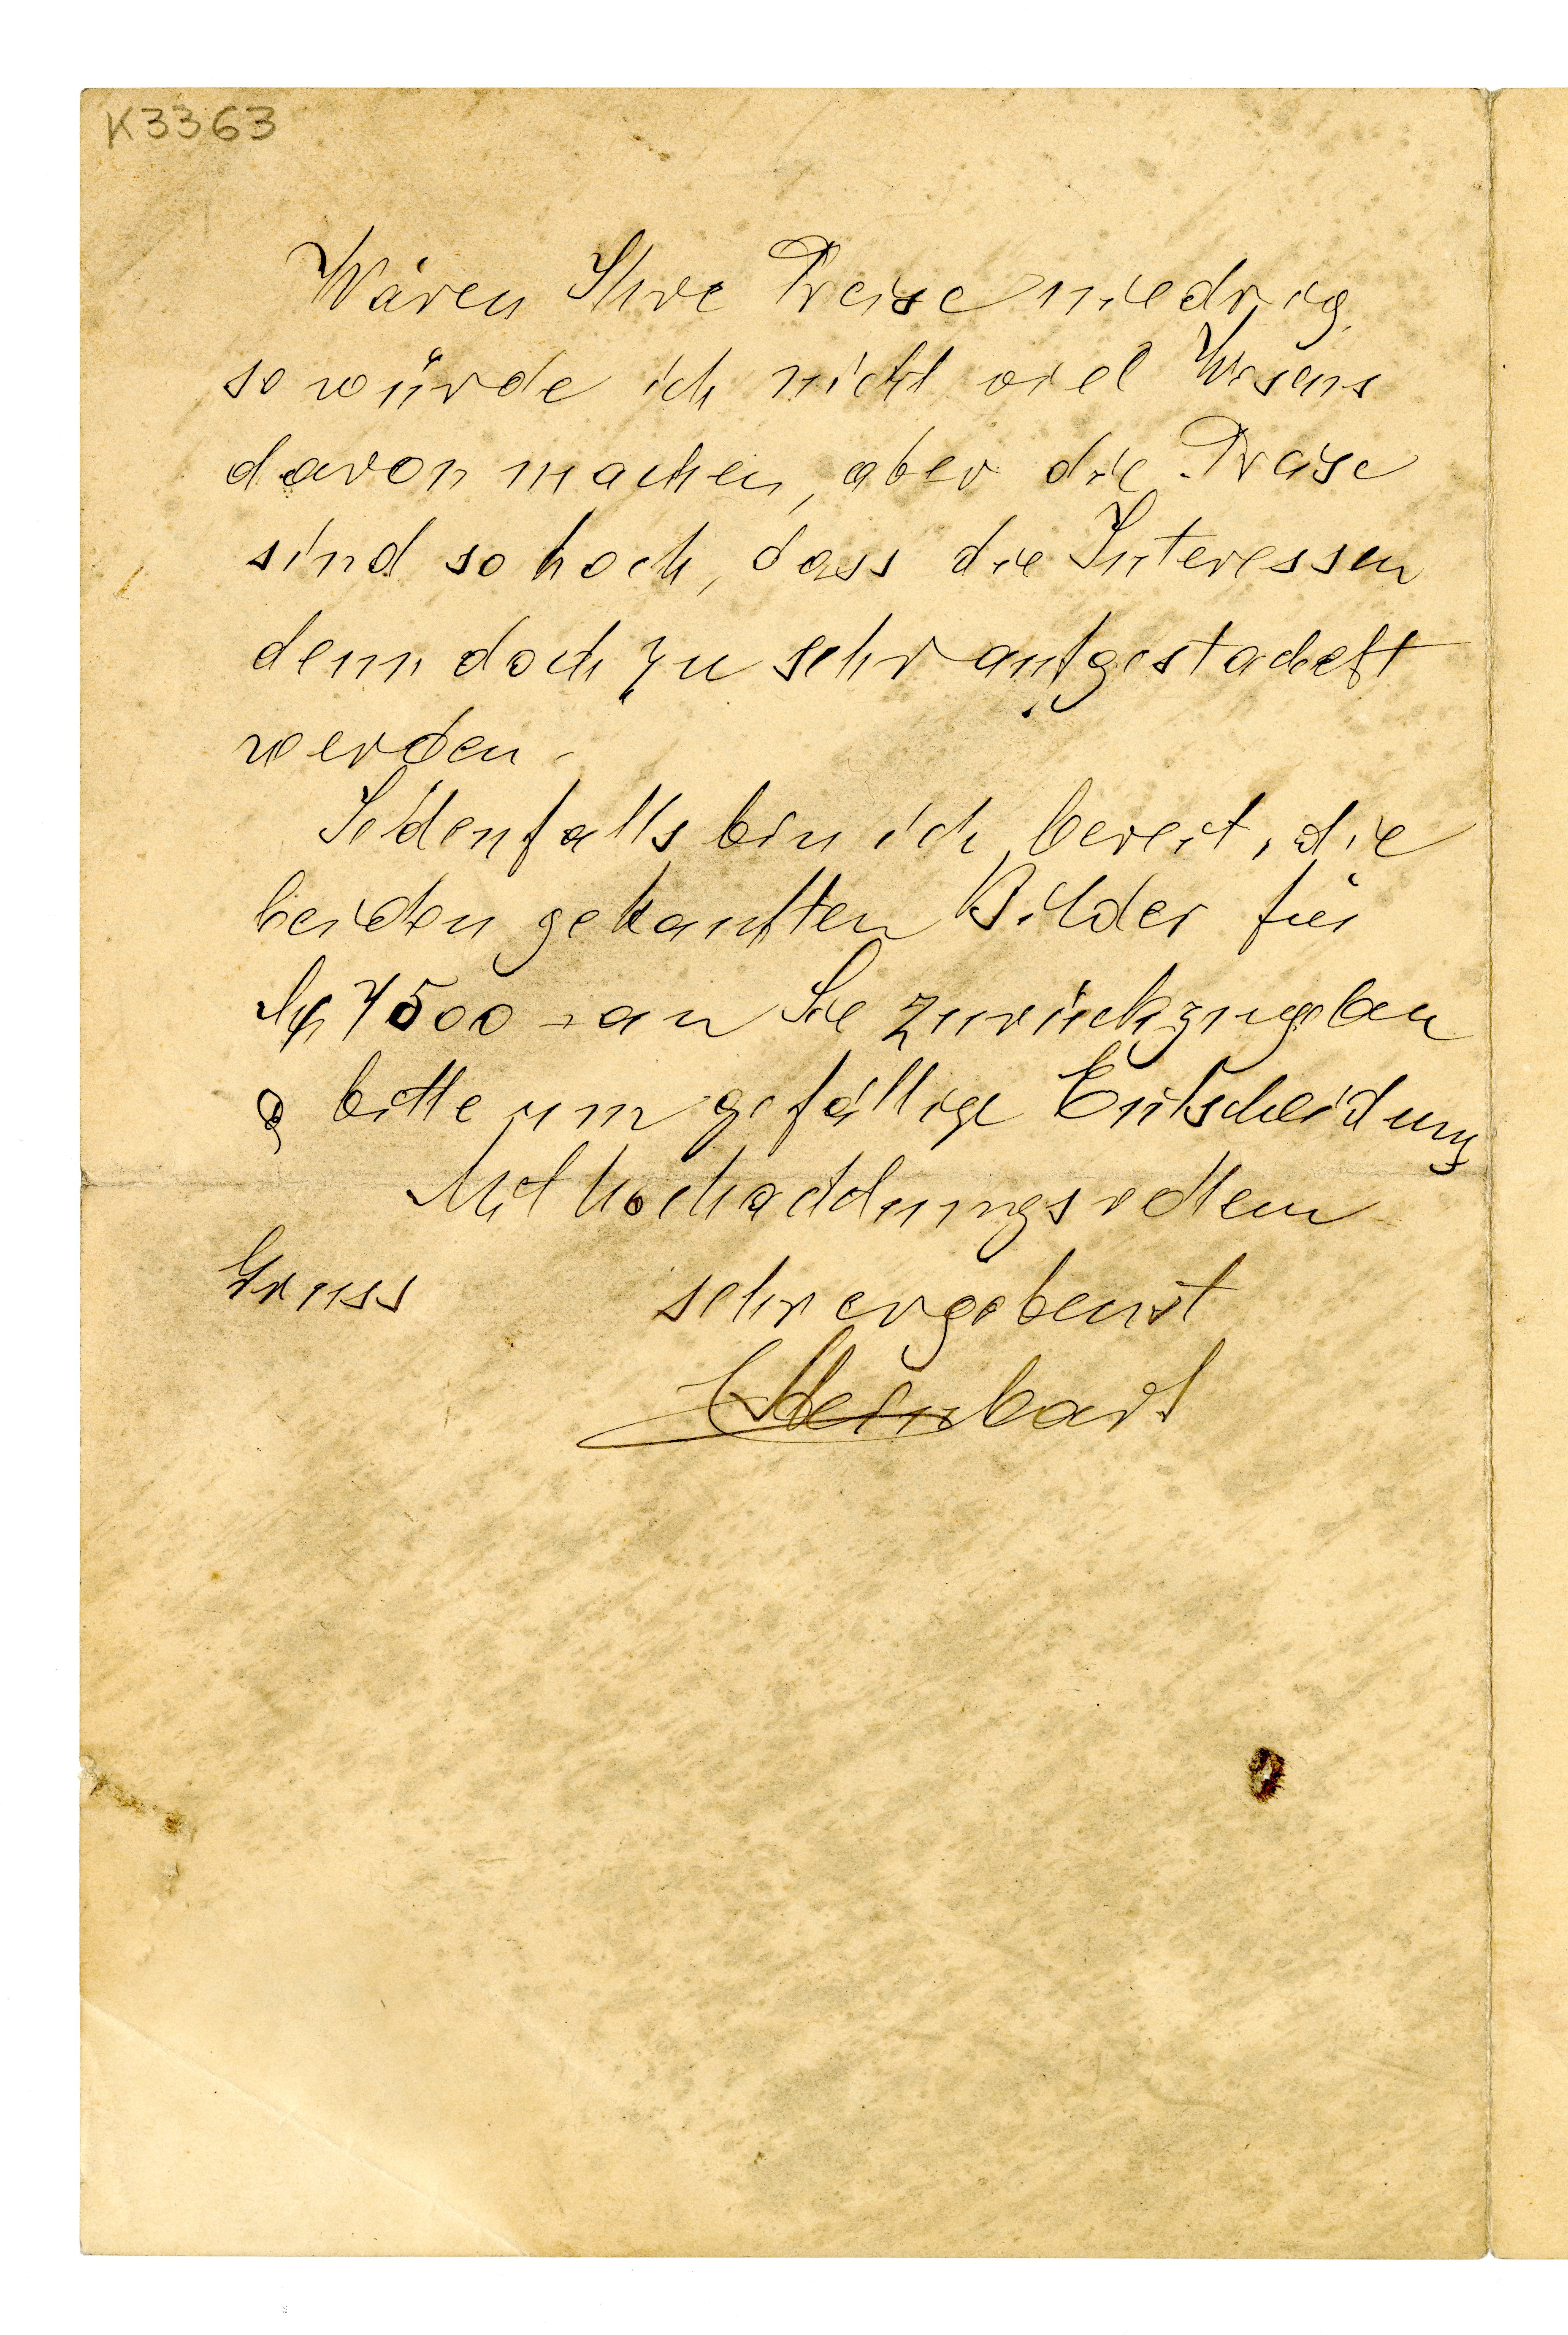 K3363
Wären Ihre Preise niedrig,
so würde ich nicht viel Wesens
davon machen, aber die Preise
sind so hoch, dass die Interessen
denn doch zu sehr aufgestachelt
werden.
Jedenfalls bin ich bereit, die
beiden gekauften Bilder für
7500 – an Sie zurückzugeben
& bitte um gefällige Entscheidung
Mit hochachtungsvollem
Gruss sehr ergebenst
Steinbart